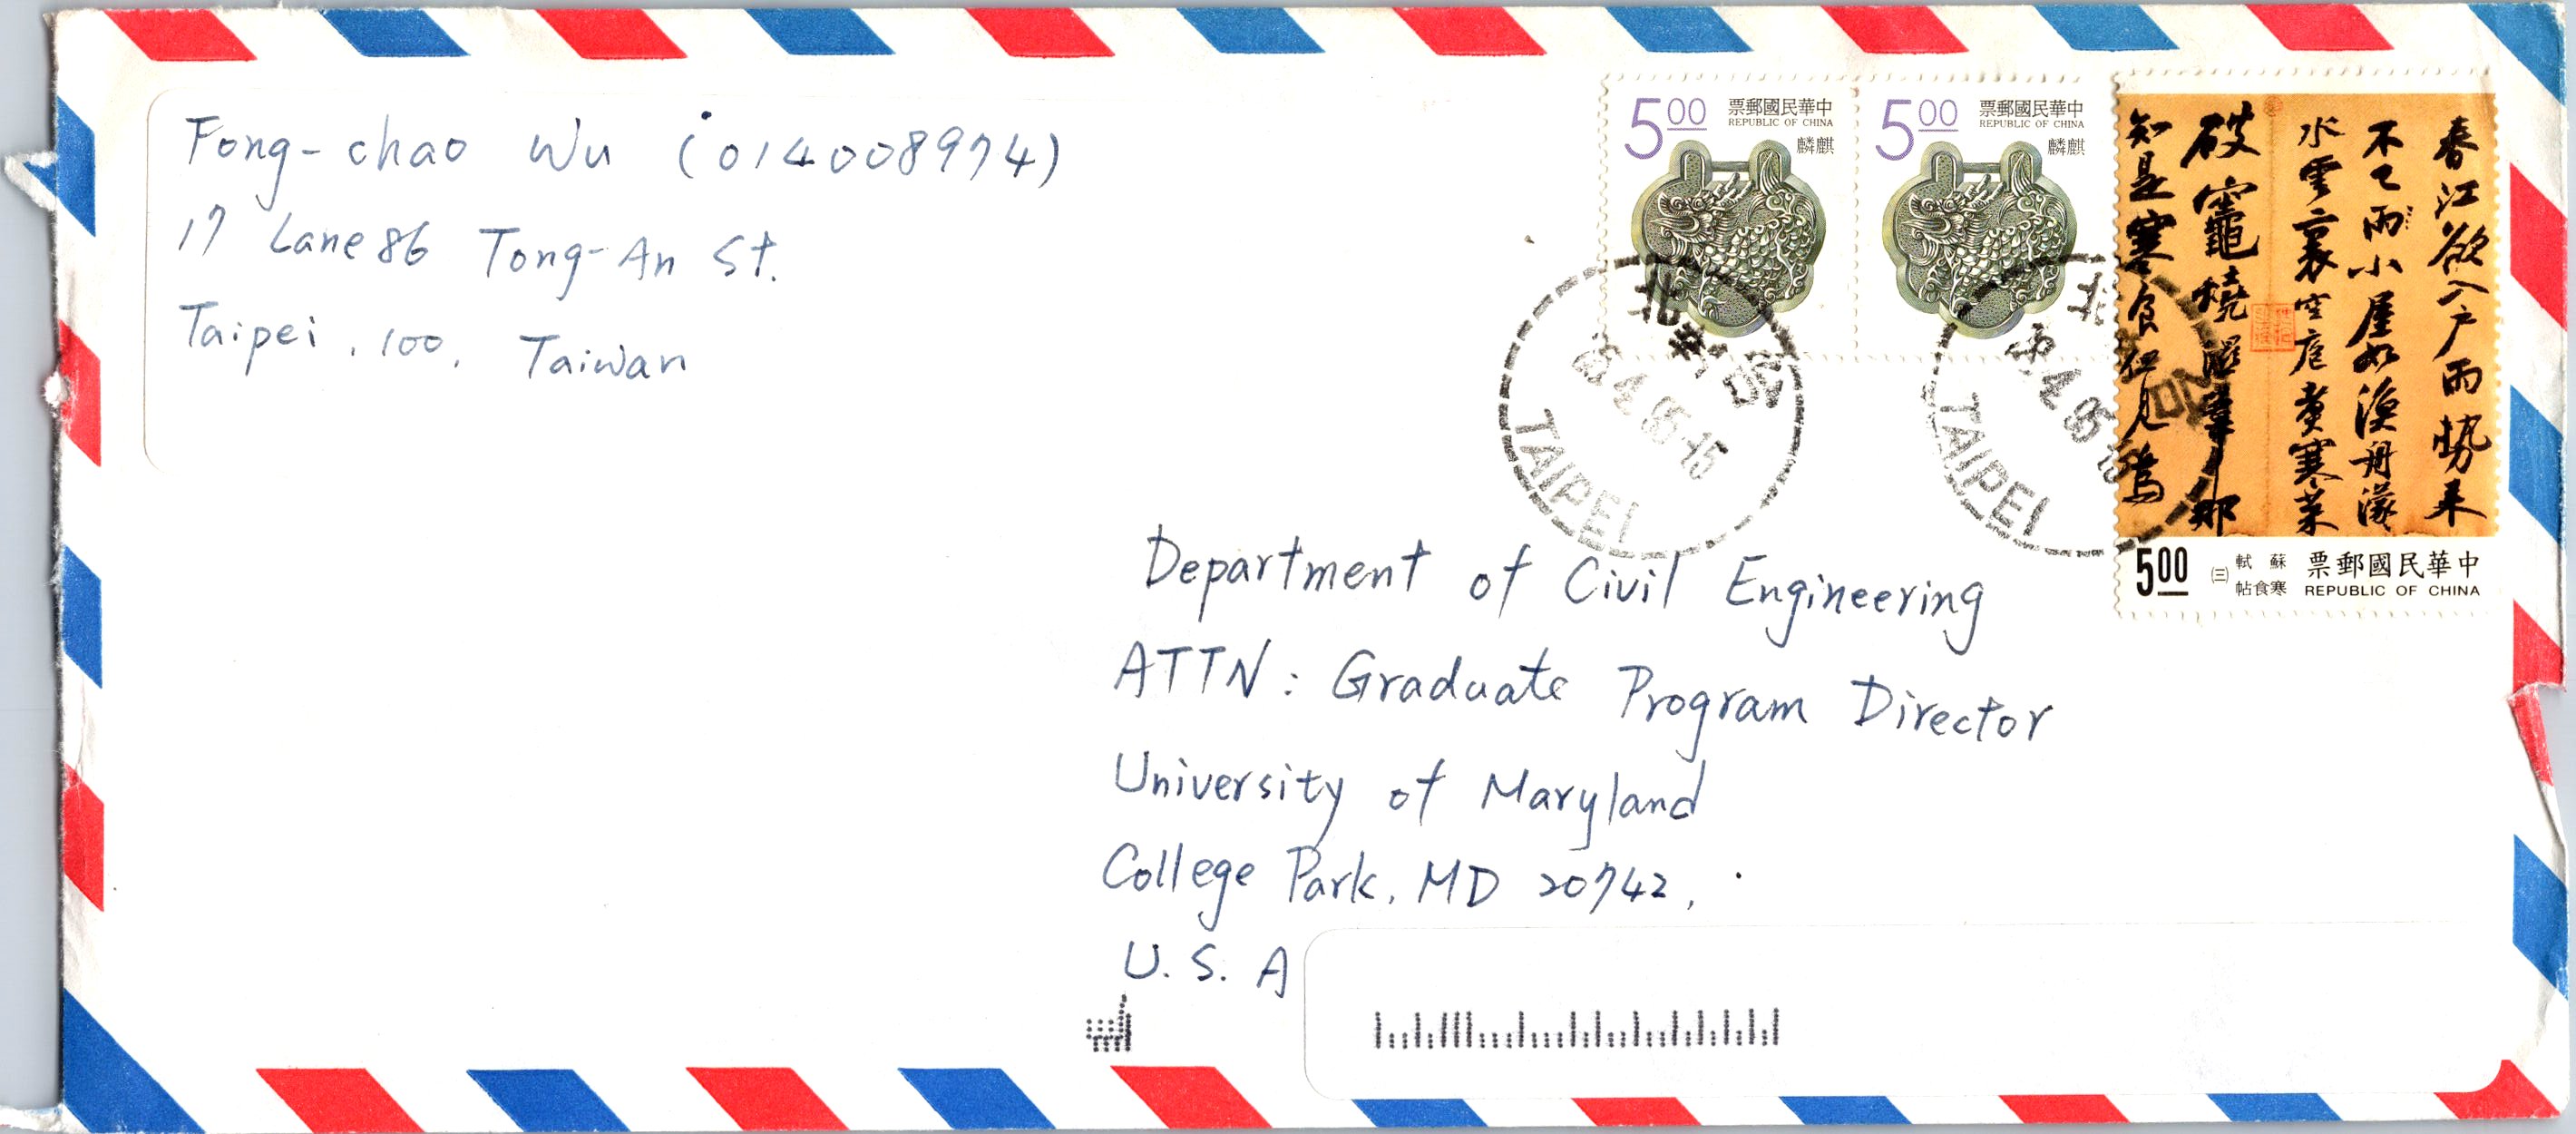 Fong-chao Wu (014008974)
17 Lane 86 Tong-An St.
Taipei, 100, Taiwan
500 票郵國民華中
REPUBLIC OF CHINA
麟麒
500 票郵國民華中
REPUBLIC OF CHINA
麟麒
春江欲入户雨勢来
不已雨小屋如漁舟濛
水雲裏空庖煮寒菜
破竈燒濕葦那
知是寒食但見烏
500 ㈢ 軾 蘇 票郵國民華中
帖食寒 REPUBLIC OF CHINA
TAIPEI
TAIPEI
Department of Civil Engineering
ATTN: Graduate Program Director
University of Maryland
College Park, MD 20742,
U.S.A